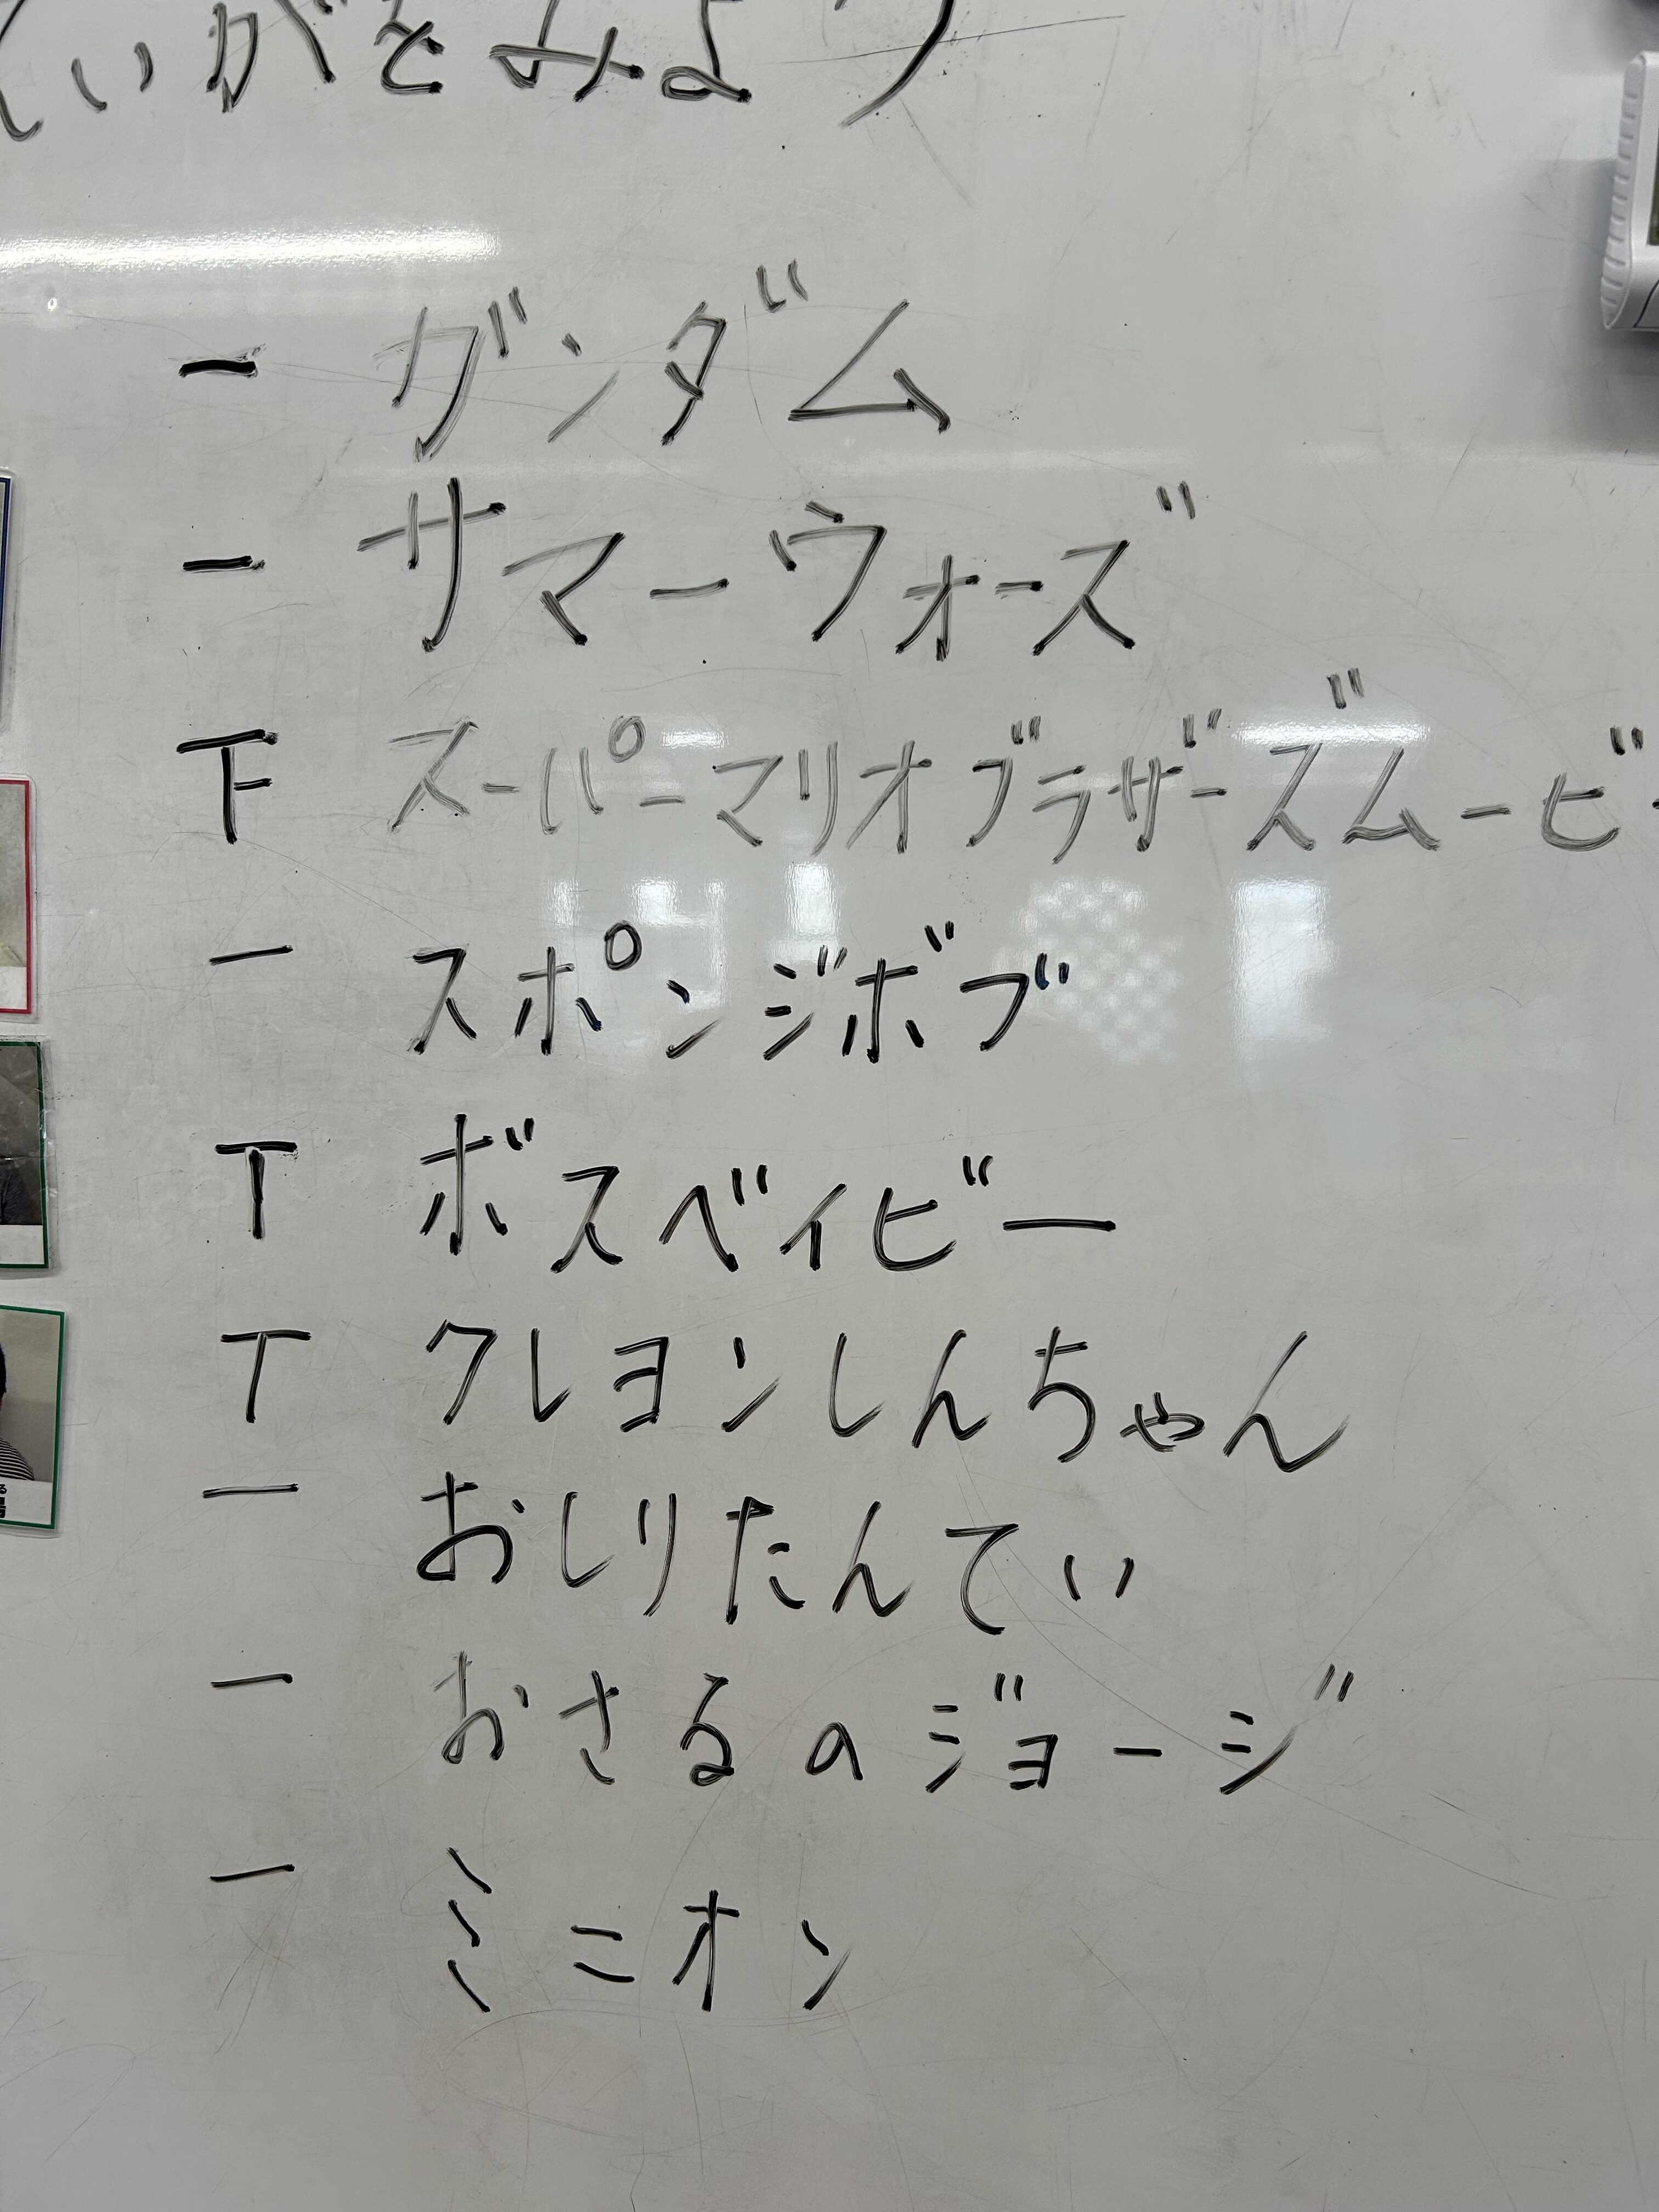 いがをみよう
一 ガンダム
一 サマーウォーズ
下 スーパーマリオブラザーズムービー
一 スポンジボブ
T ボスベイビー
T クレヨンしんちゃん
一 おしりたんてい
一 おさるのジョージ
一 ミニオン